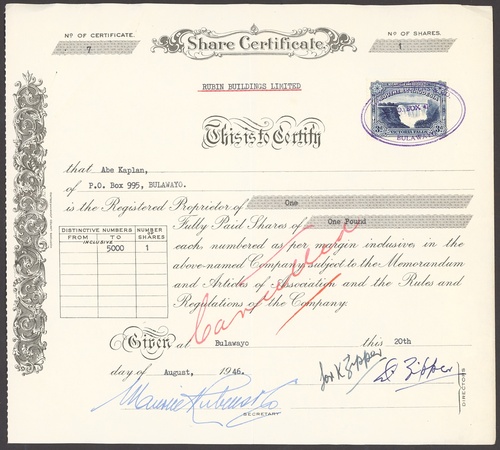 Nº OF CERTIFICATE.
7
Share Certificate.
Nº OF SHARES.
1
RUBIN BUILDINGS LIMITED
This is to Certify
VICTORIA FALLS
BOX 4
BULAWAYO
that Abe Kaplan,
of P.O. Box 995, BULAWAYO.
is the Registered Proprietor of One
Fully Paid Shares of One Pound
each, numbered as per margin inclusive in the
above-named Company subject to the Memorandum
and Articles of Association and the Rules and
Regulations of the Company.
DISTINCTIVE NUMBERS
FROM TO
INCLUSIVE
NUMBER
OF
SHARES
5000 1
Cancelled
Given at Bulawayo this 20th
day of August, 1946.
Zipper
Zipper
SECRETARY
DIRECTORS